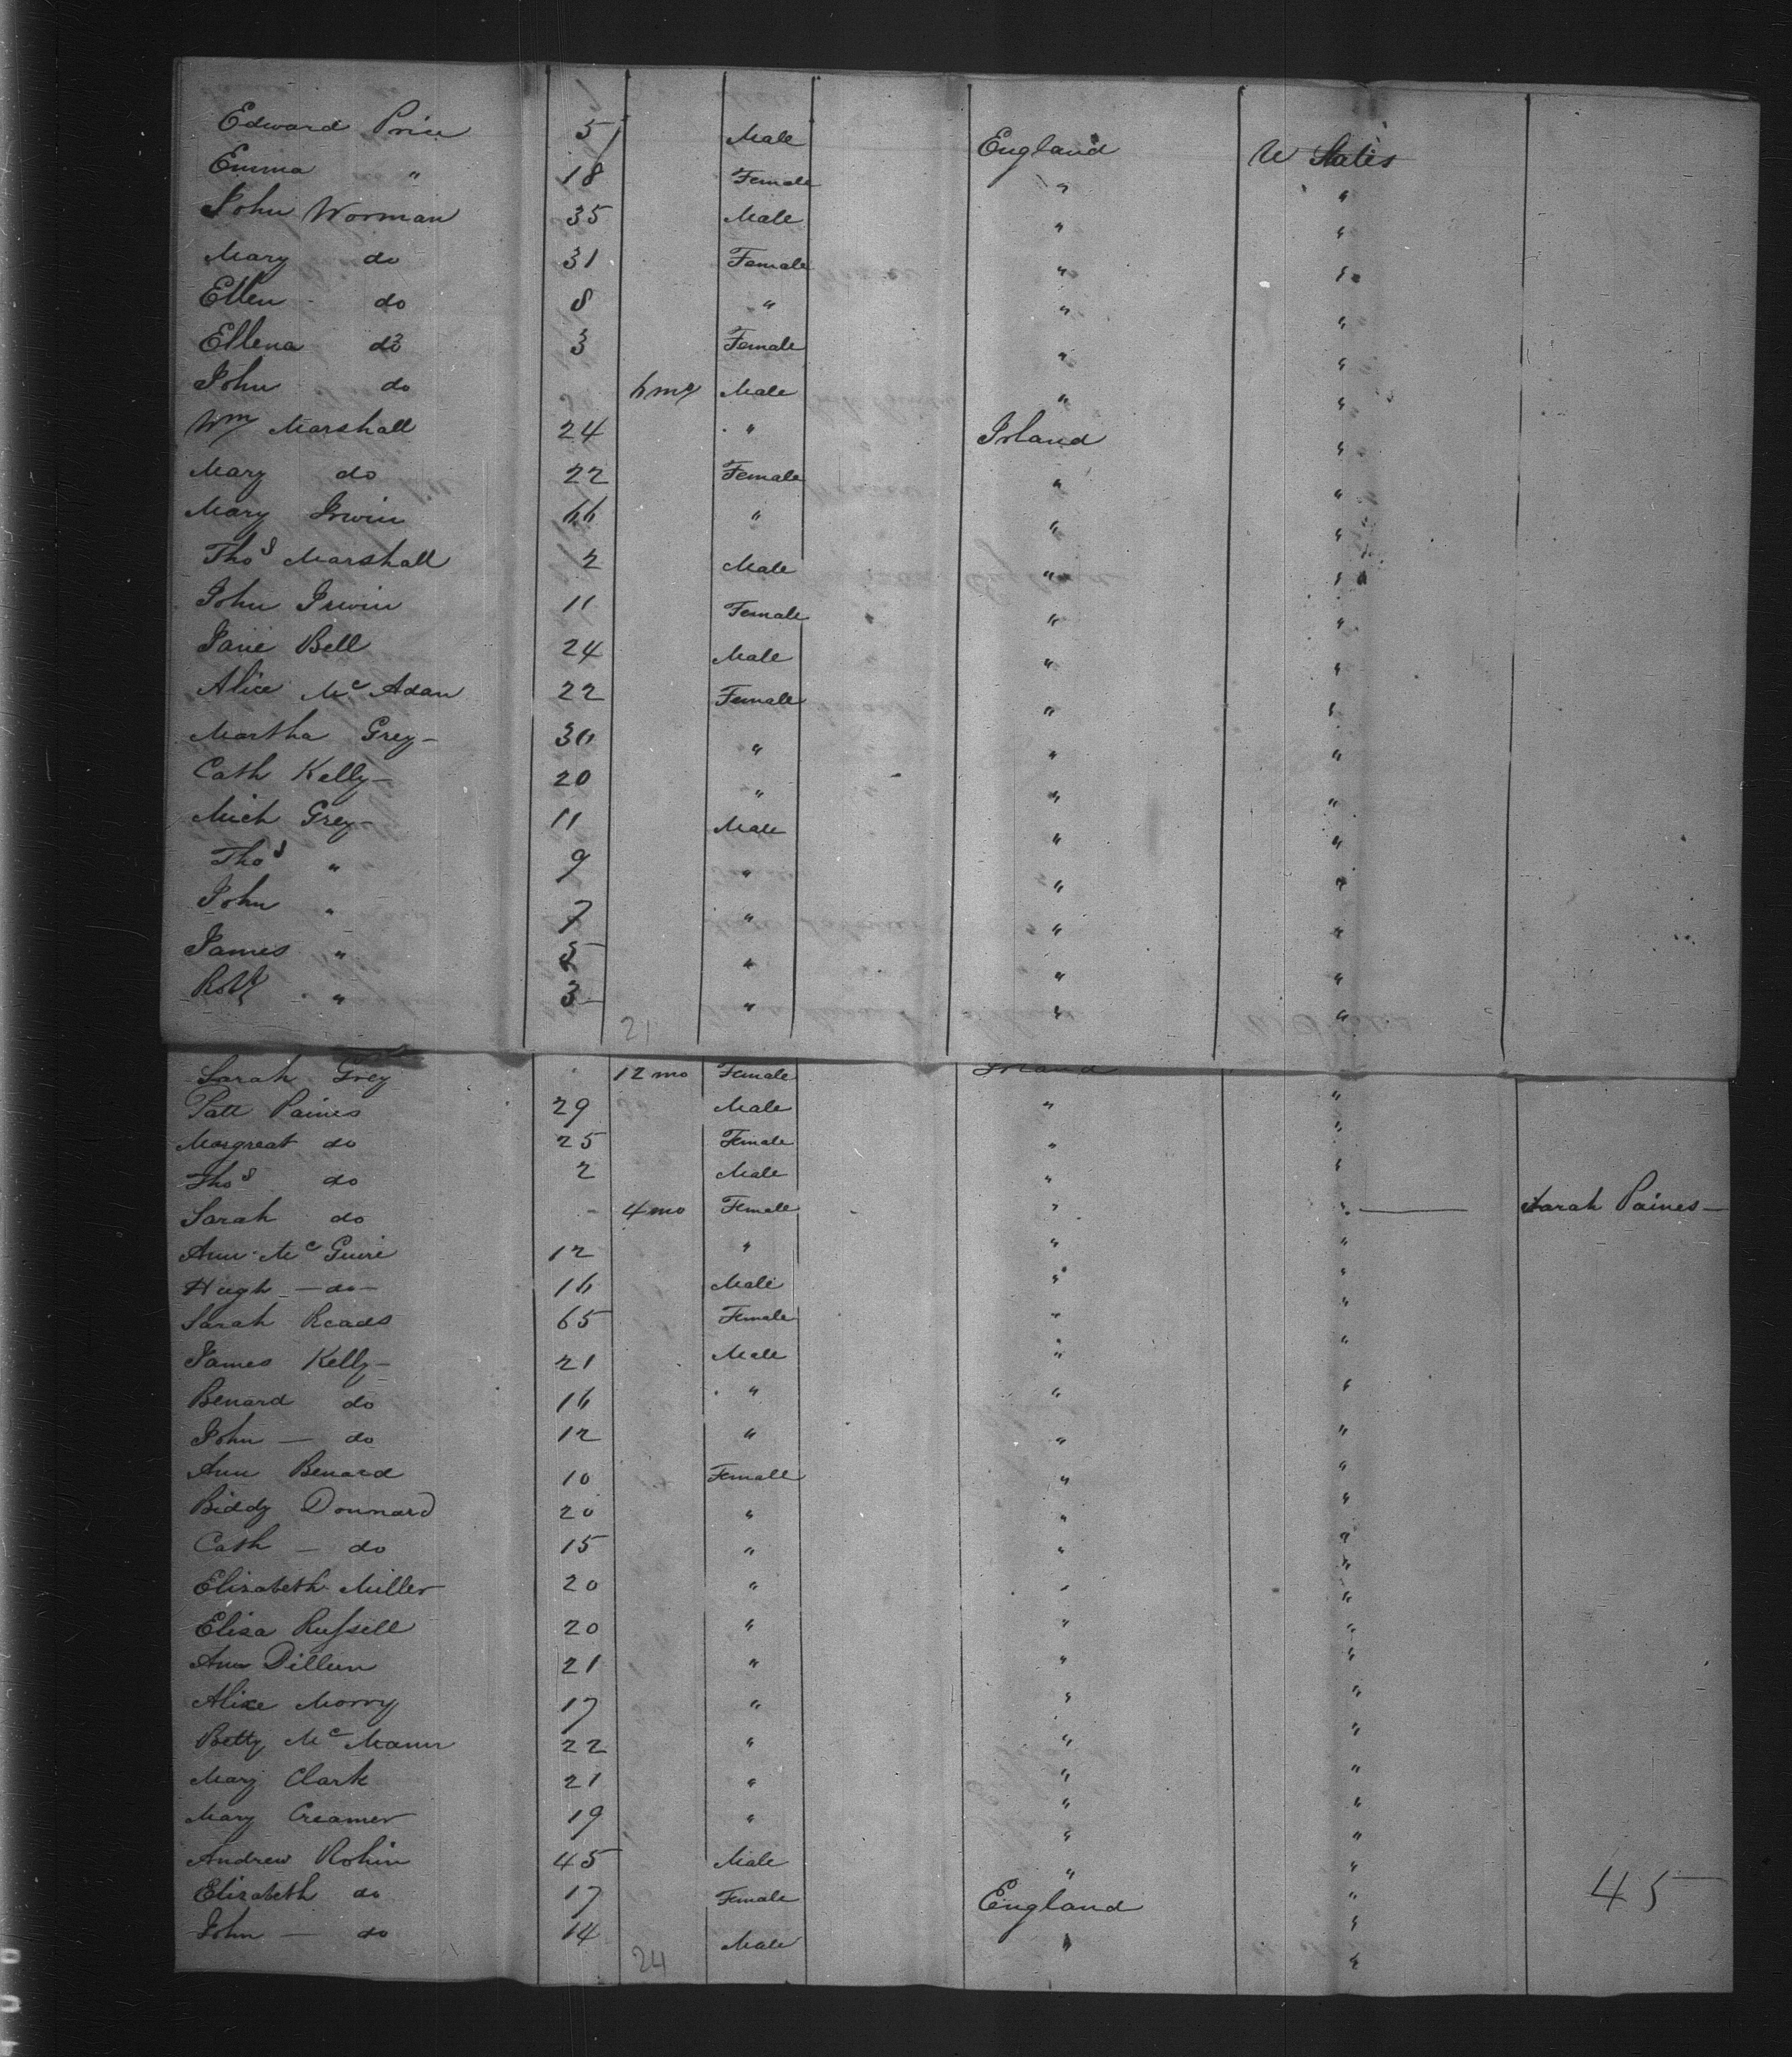 Edward Price 51 Male England U States
Emma " 18 Female " "
John Worman 35 Male " "
Mary do 31 Female " "
Ellen do 8 " " "
Ellena do 3 Female " "
John do Male " "
Wm Marshall 24 " Irland "
Mary do 22 Female " "
Mary Irwin 66 " " "
Thos Marshall 2 Male " "
John Irwin 11 Female " "
Jane Bell 24 Male " "
Alice Mc Adam 22 Female " "
Martha Grey 30 " " "
Cath Kelly 20 " " "
Mich Grey 11 Male " "
Thos " 9 " " "
John " 7 " " "
James " 5 " " "
Robt " 3 " " "
21
Sarah Grey 12 mo Female Irland
Patt Paines 29 Male " "
Margreat do 25 Female " "
Thos do 2 Male " "
Sarah do 4 mo Female " " — Sarah Paines —
Ann Mc Guire 12 " " "
Hugh — do — 16 Male " "
Sarah Reads 65 Female " "
James Kelly 21 Male " "
Benard do 16 " " "
John — do 12 " " "
Ann Benard 10 Female " "
Biddy Donnard 20 " " "
Cath — do 15 " " "
Elizabeth Miller 20 " " "
Eliza Russell 20 " " "
Ann Dillun 21 " " "
Alice Morry 17 " " "
Betty Mc Mann 22 " " "
Mary Clark 21 " " "
Mary Creamer 19 " " "
Andrew Rohin 45 Male " "
Elizabeth do 17 Female England "
John — do 14 Male " "
24
45